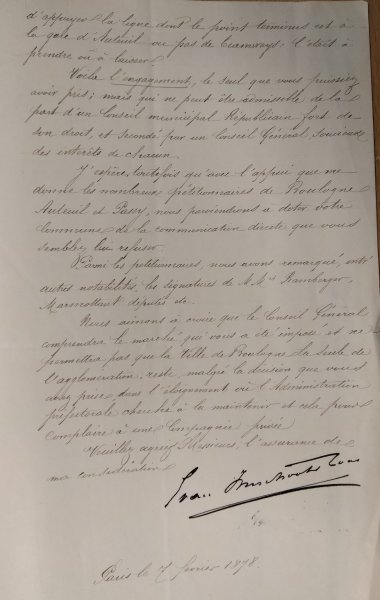 d'appuyer la ligne dont le point terminus est à
la gare d'Auteuil ou pas de Tramways; c'était à
prendre ou à laisser
Voilà l'engagement, le seul que vous puissiez
avoir pris; mais qui ne peut être admissible de la
part d'un Conseil municipal Républicain fort de
son droit, et secondé par un Conseil Général, soucieux
des intérêts de chacun.
J'espère, toutefois qu'avec l'appui que me
donne les nombreux pétitionnaires de Boulogne
Auteuil et Passy, nous parviendrons à doter votre
Commune de la communication directe que vous
semblez lui refuser.
Parmi les pétitionnaires, nous avons remarqué, entr'
autres notabilités, les signatures de M. Mrs
Marmottant député etc.
Nous aimons à croire que le Conseil Général
comprendra le marché qui vous a été imposé et ne
permettra pas que la Ville de Boulogne la seule de
l'agglomération, reste, malgré la décision que vous
avez prise dans l'éloignement où l'Administration
préfectorale cherche à la maintenir et cela pour
complaire à une Compagnie privée
Veuillez agréer Messieurs, l'assurance de
ma considération
Paris le 7 février 1878.